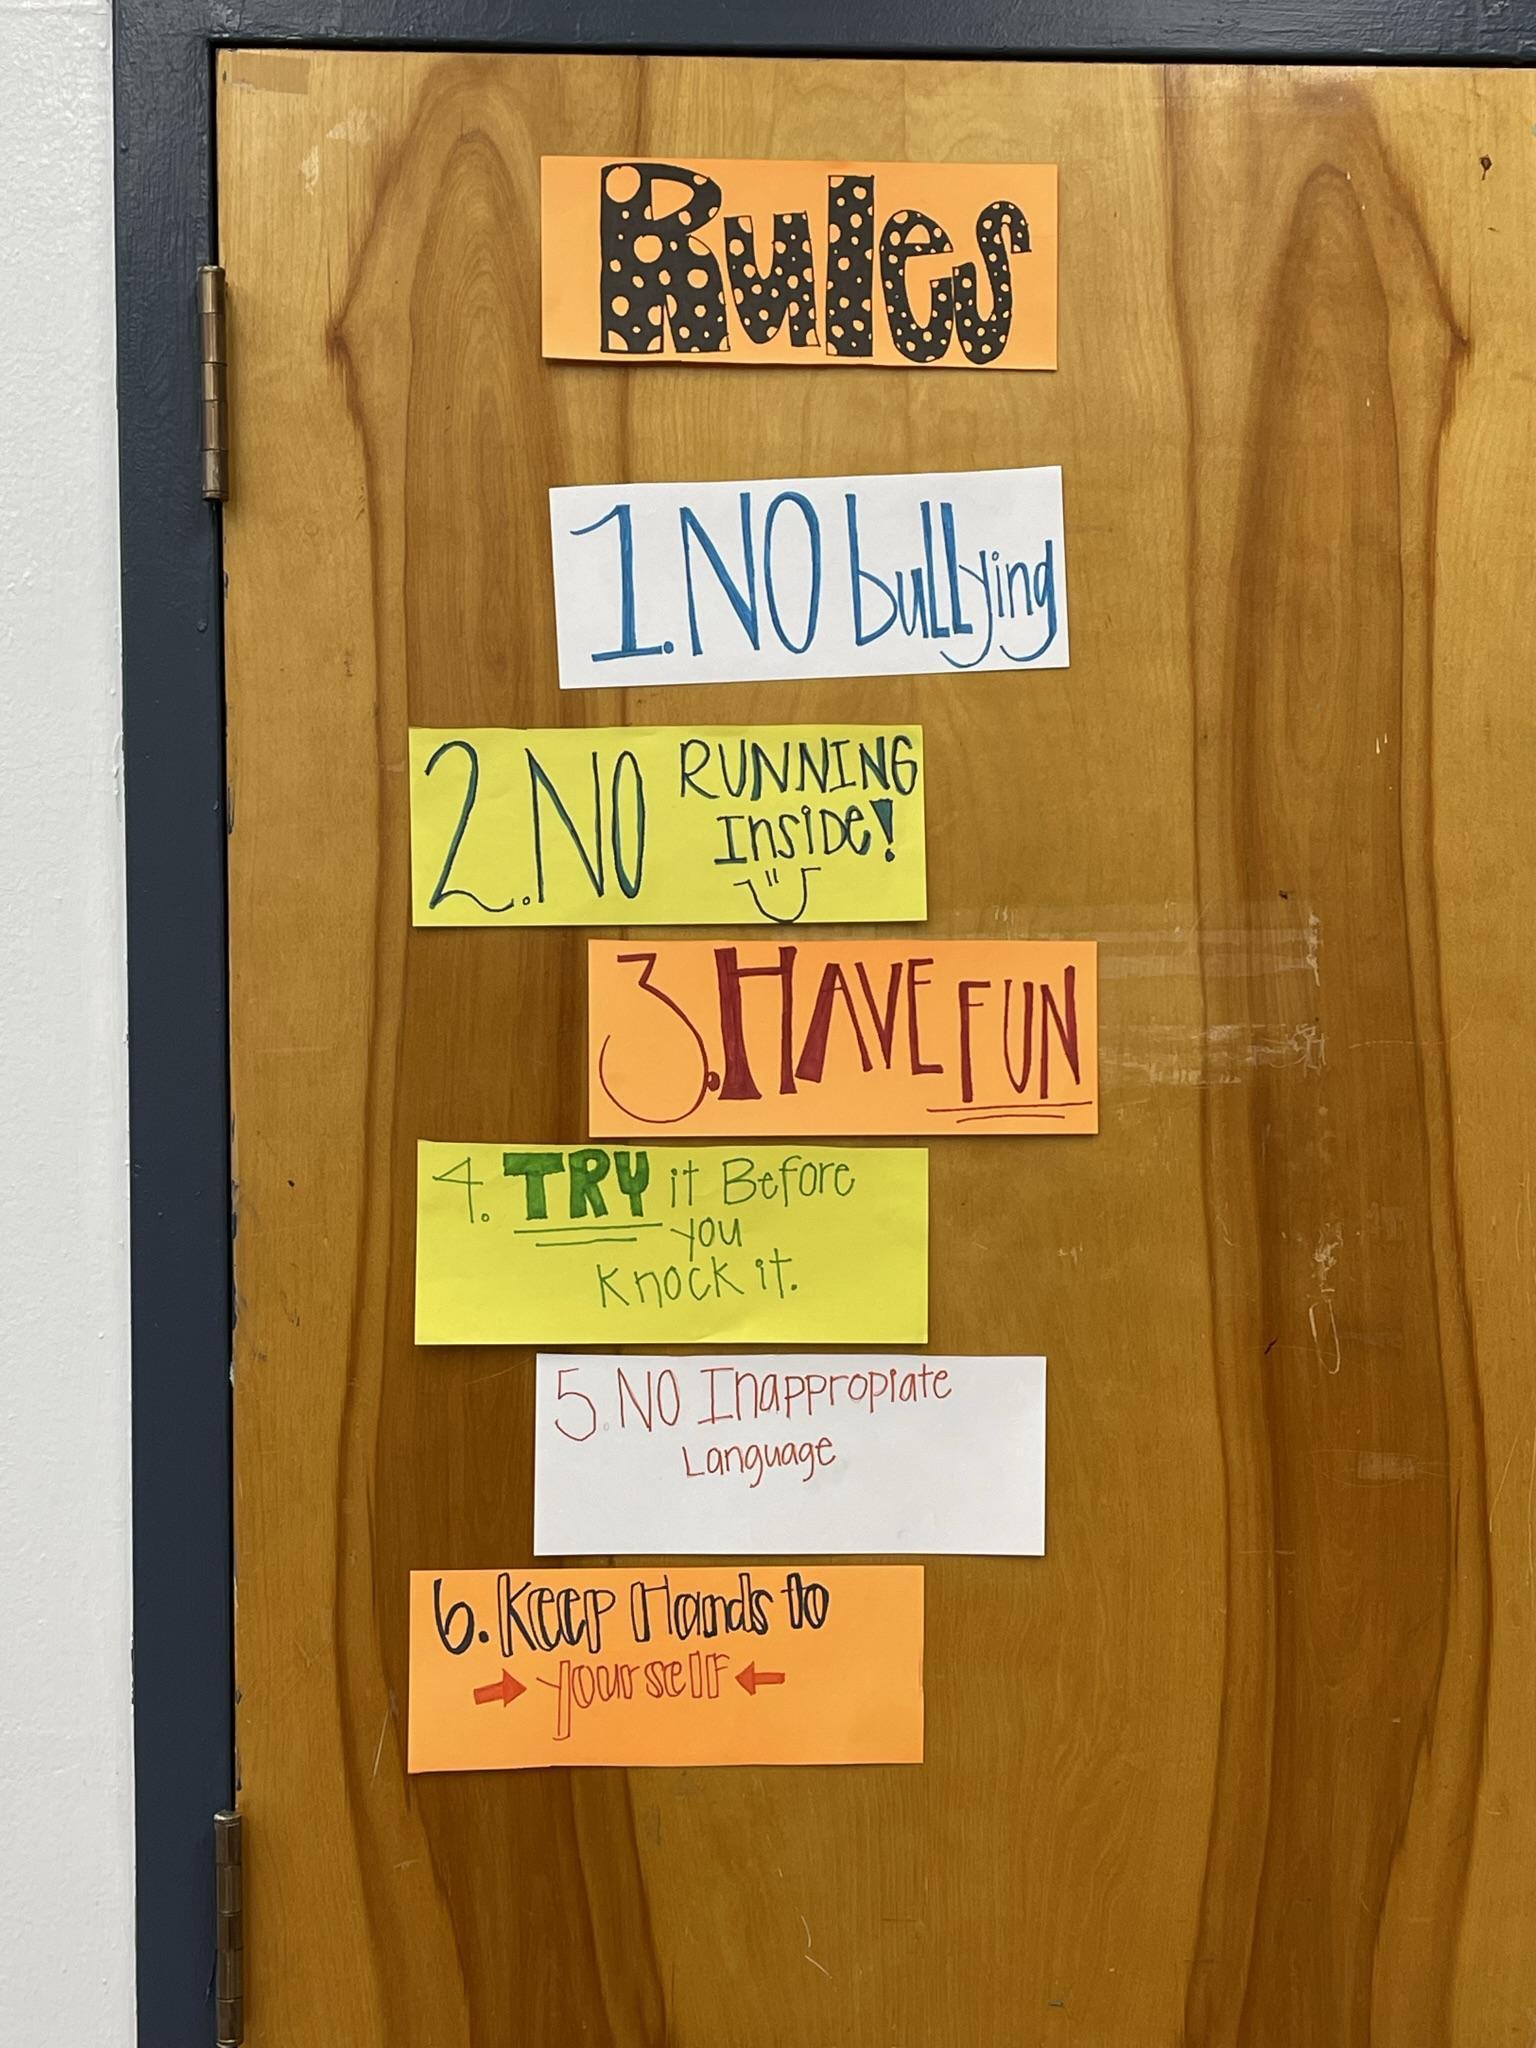 Rules
1. NO bullying
2. NO RUNNING
InsiDe!
3. HAVE FUN
4. TRY it Before
you
Knock it.
5. NO Inappropiate
Language
6. Keep Hands to
yourself